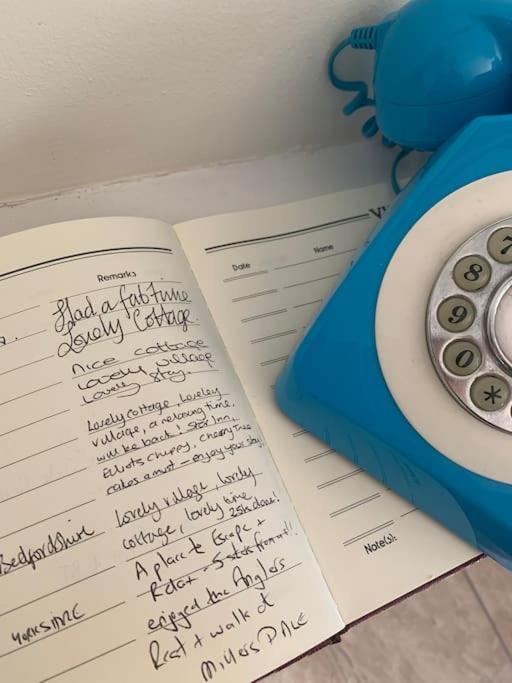 Remarks
Had a fab time
Lovely Cottage
Nice cottage
Lovely village
Lovely stay.
Lovely cottage, Loveley
village, a relaxing time,
will be back! Star Inn,
Elliots chippy, cherry Tree
cakes a must - enjoy your stay
Lovely village, lovely
cottage, lovely time
25ks done!
Bedfordshire
A place to Escape +
Relax - 5 stars from us!!
enjoyed the Anglers
YORKSHIRE
Rest + walk at
Millers DALE
Date
Name
Note(s):
7
8
9
0
*